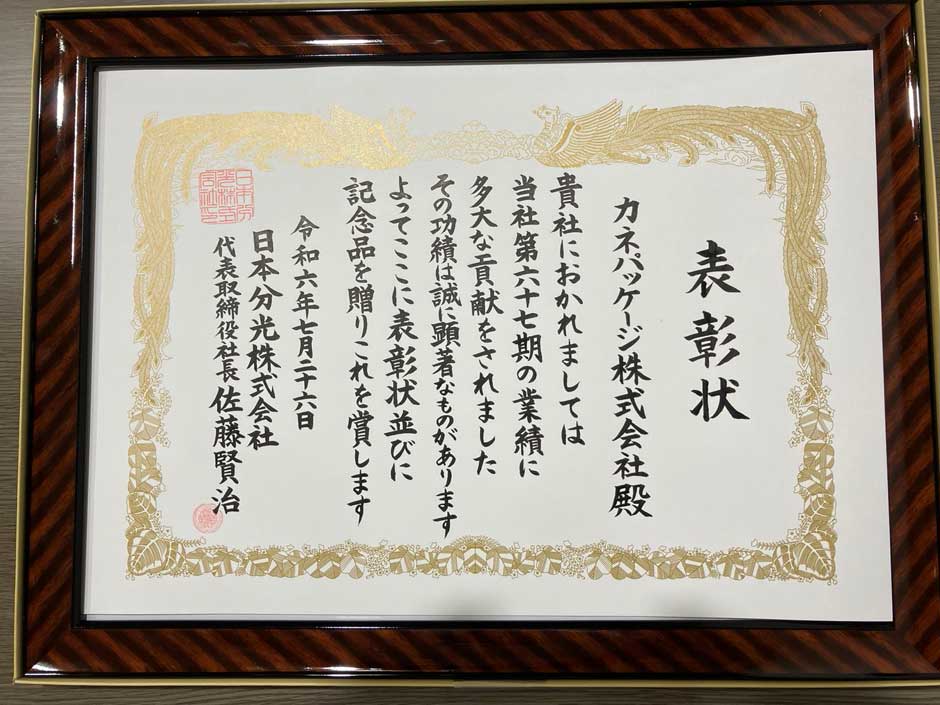 表彰状
カネパッケージ株式会社殿
貴社におかれましては
当社第六十七期の業績に
多大な貢献をされました
その功績は誠に顕著なものがあります
よってここに表彰状並びに
記念品を贈りこれを賞します
令和六年七月二十六日
日本分光株式会社
代表取締役社長 佐藤賢治
日本分
光株式
会社印